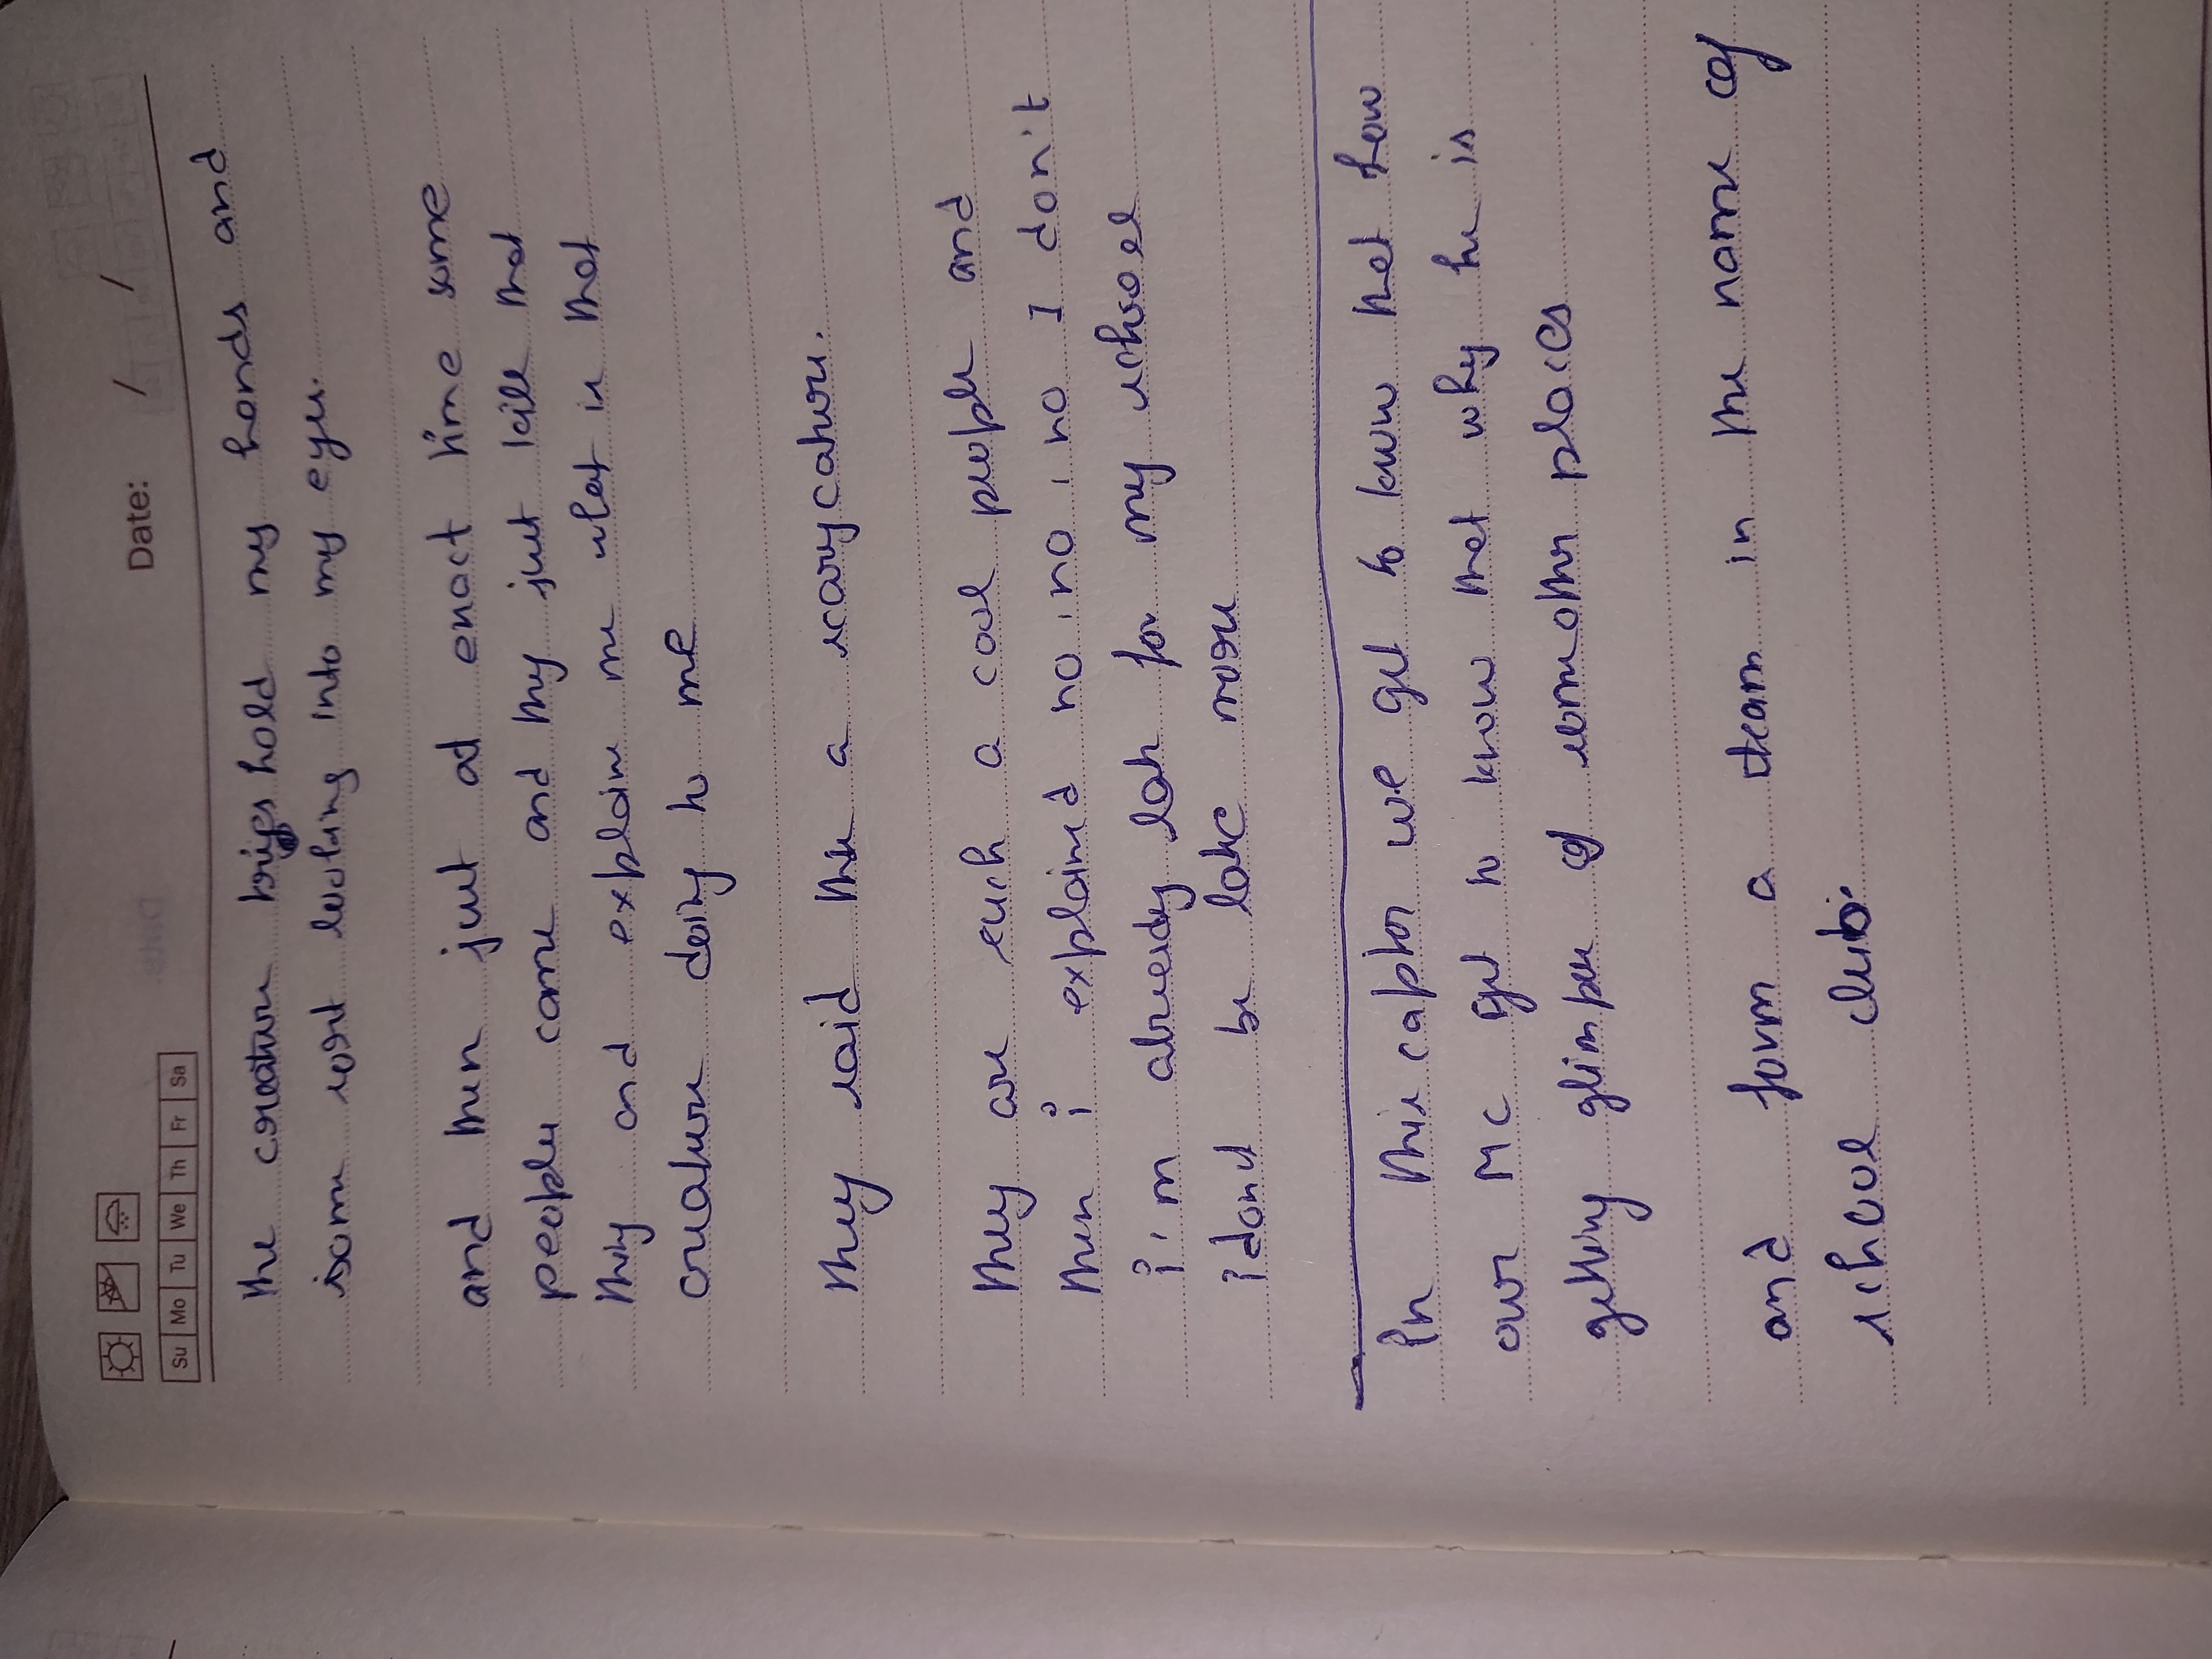 Date: / /
Su Mo Tu We Th Fr Sa
the creature hold my hands and
some sort looking into my eyes.
and then just at exact time some
peoples came and they just kill that
thing and explaine me what is that
creature doing to me
they said this a scary cature.
they are such a cool people and
then i explained no, no, no I don't
i'm already late for my school
i dont be late more
In this captor we get to know that how
our MC get to know that why he is
getting glimpse of some other places
and form a team in the name of
school club.